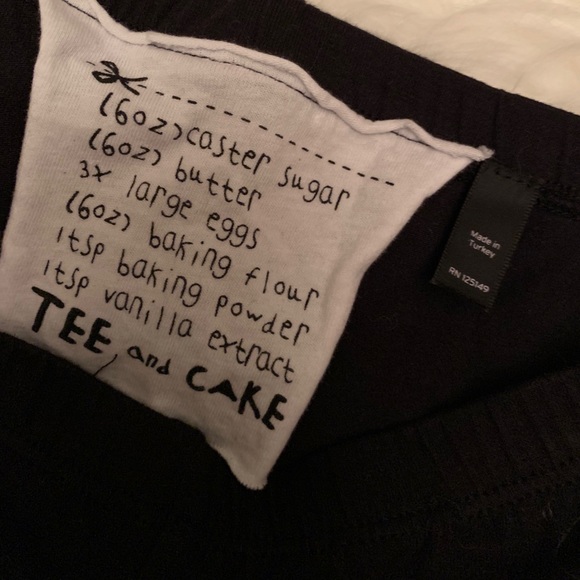 (6oz) caster sugar
(6oz) butter
3x large eggs
(6oz) baking flour
1tsp baking powder
1tsp vanilla extract
TEE and CAKE
Made in
Turkey
RN 125149